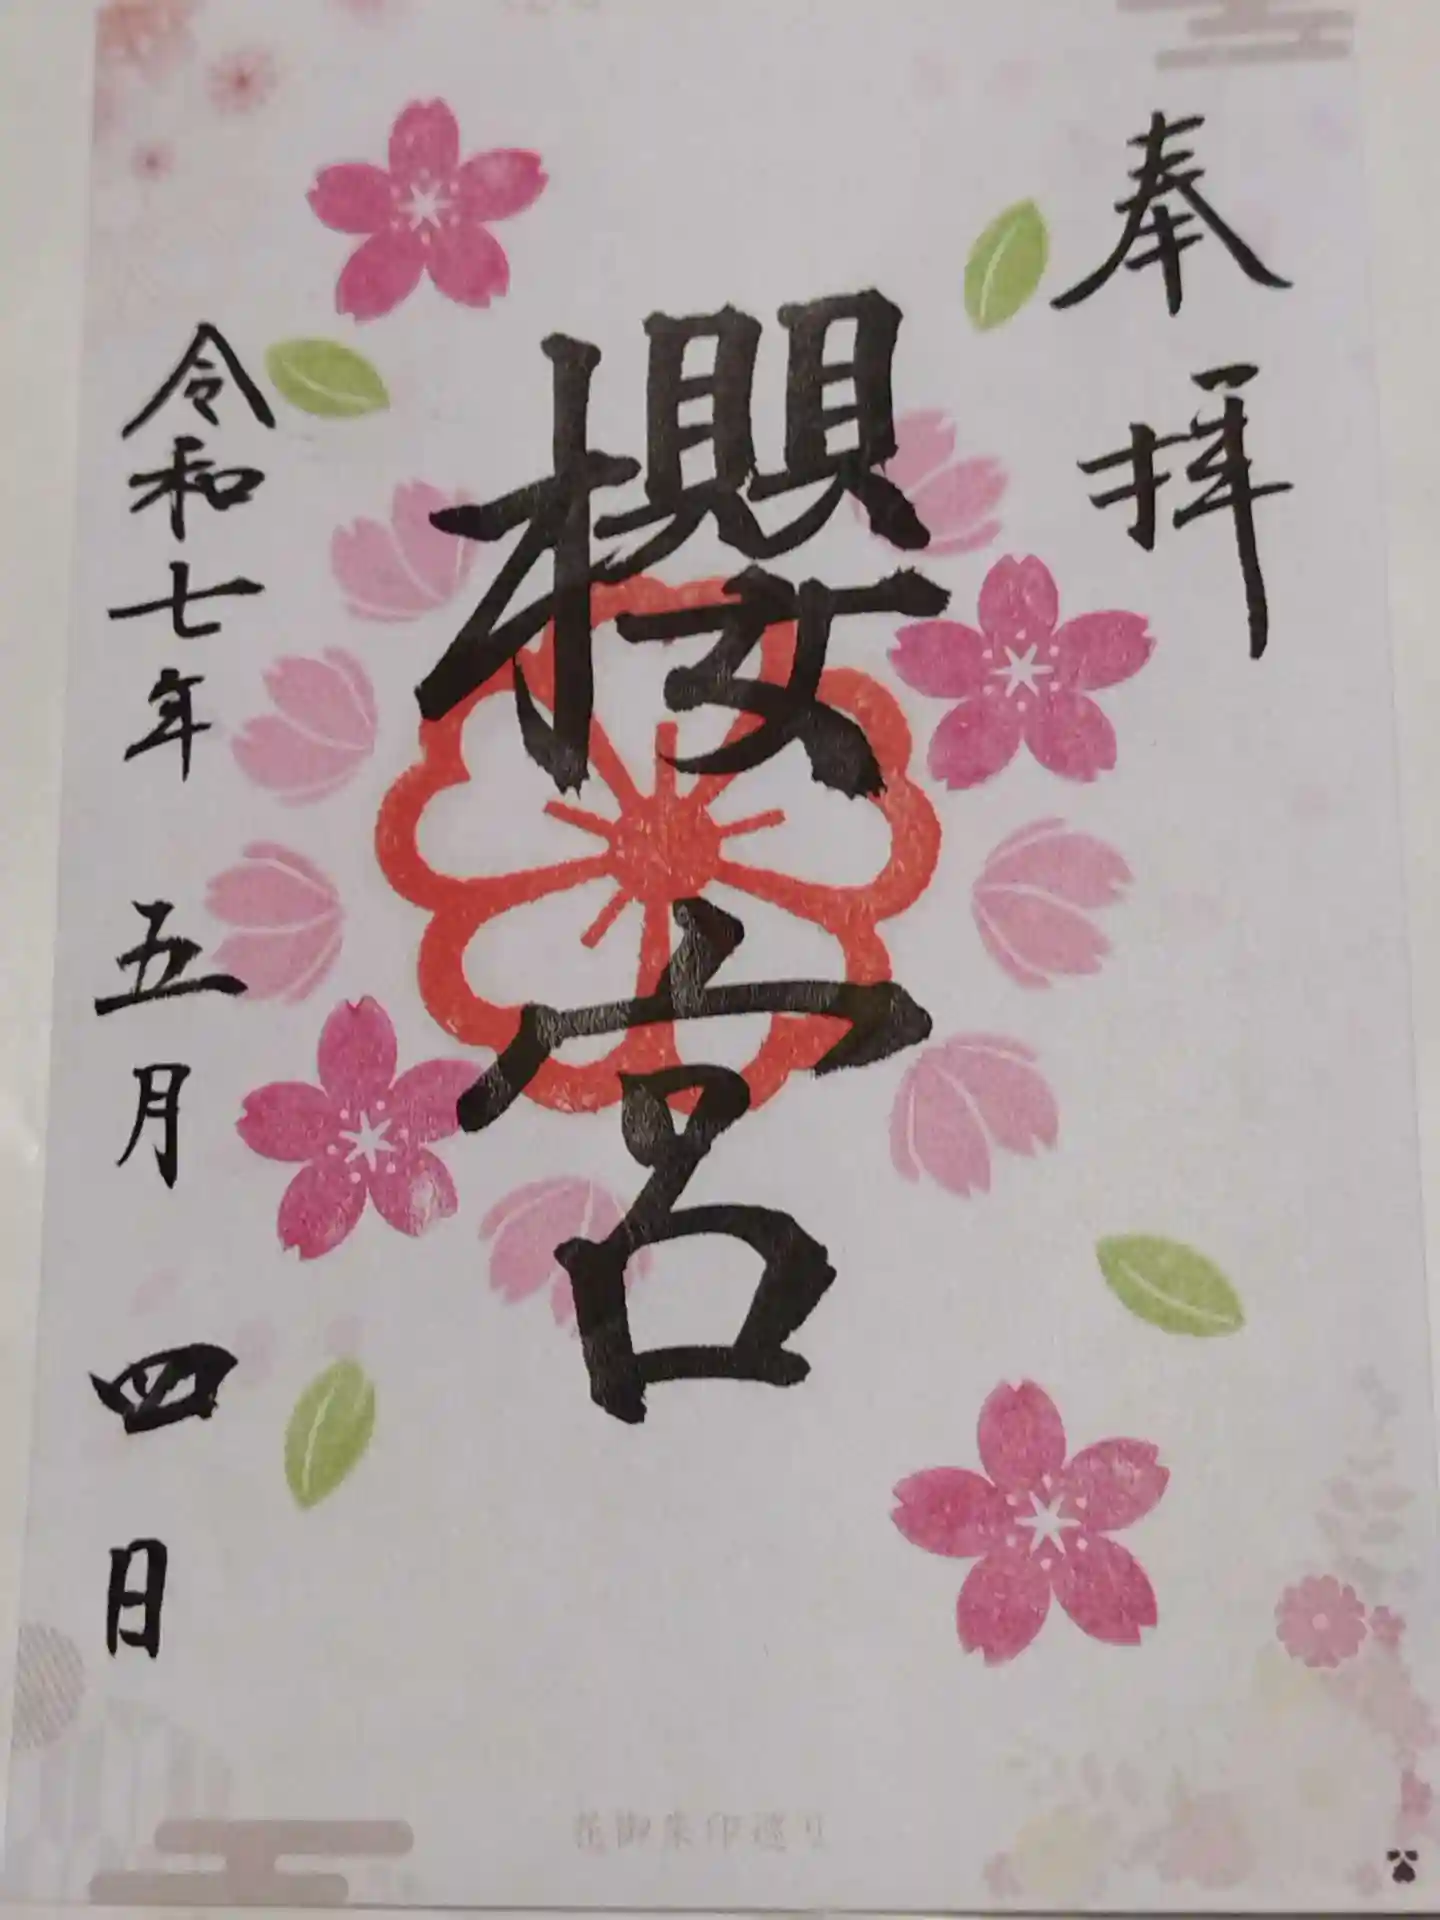 奉拝
櫻宮
令和七年五月四日
花御朱印巡り